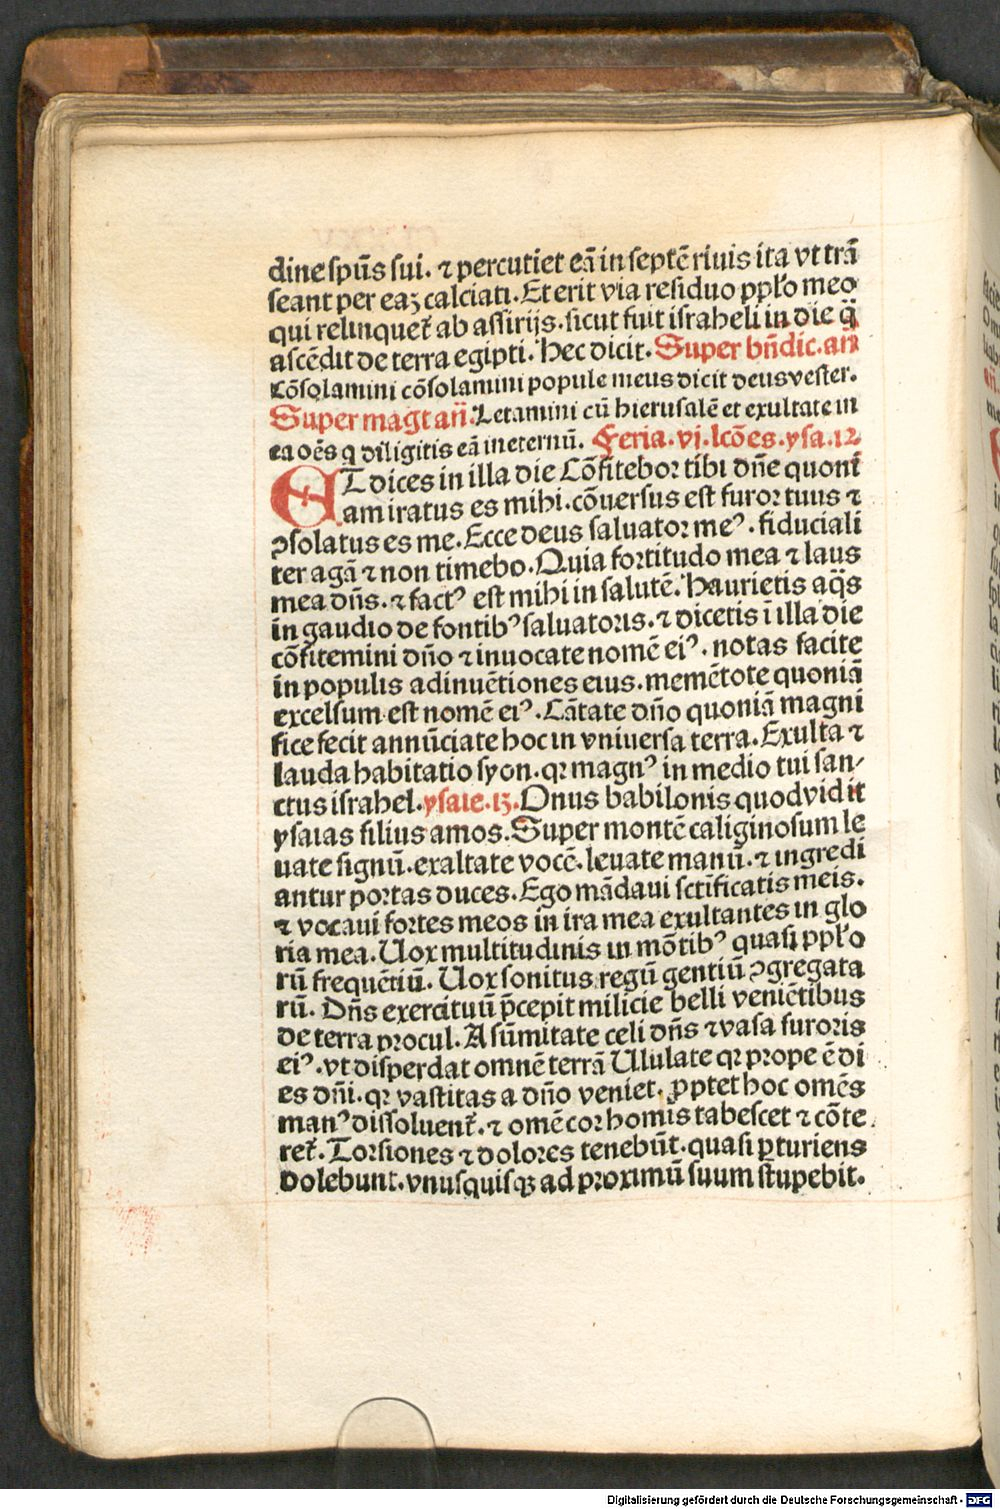 dine spūs sui. ⁊ percutiet eā in septē riuis ita vt trā
seant per eaꝫ calciati. Et erit via residuo ppło meo
qui relinquet᷑ ab assirijs. sicut fuit israheli in die q̄
ascēdit de terra egipti. Hec dicit. Super bn̄dic. an̄
Cōsolamini cōsolamini popule meus dicit deus vester.
Super magt an̄. Letamini cū hierusalē et exultate in
ea oēs q diligitis eā in eternū. Feria. vj. lcōes. ysa. 12
ET dices in illa die Cōfitebor tibi dn̄e quoni
am iratus es mihi. cōuersus est furor tuus ⁊
ꝯsolatus es me. Ecce deus saluator meꝰ. fiduciali
ter agā ⁊ non timebo. Quia fortitudo mea ⁊ laus
mea dn̄s. ⁊ factꝰ est mihi in salutē. Haurietis aq̄s
in gaudio de fontibꝰ saluatoris. ⁊ dicetis ī illa die
cōfitemini dn̄o ⁊ inuocate nomē eiꝰ. notas facite
in populis adinuētiones eius. memētote quoniā
excelsum est nomē eiꝰ. Cātate dn̄o quoniā magni
fice fecit annūciate hoc in vniuersa terra. Exulta ⁊
lauda habitatio syon. qꝛ magnꝰ in medio tui san⸗
ctus israhel. ysaie. 13. Onus babilonis quod vidit
ysaias filius amos. Super montē caliginosum le
uate signū. exaltate vocē. leuate manū. ⁊ ingredi
antur portas duces. Ego mādaui sctīficatis meis.
⁊ vocaui fortes meos in ira mea exultantes in glo
ria mea. Uox multitudinis in mōtibꝰ quasi ppło
rū frequētiū. Uox sonitus regū gentiū ꝯgregata
rū. Dn̄s exercituū p̄cepit milicie belli veniētibus
de terra procul. A sūmitate celi dn̄s ⁊ vasa furoris
eiꝰ. vt disperdat omnē terrā Ululate qꝛ prope ē di
es dn̄i. qꝛ vastitas a dn̄o veniet. ꝓptet hoc omēs
manꝰ dissoluent᷑. ⁊ omē cor homis tabescet ⁊ cōte
ret᷑. Torsiones ⁊ dolores tenebūt. quasi ꝑturiens
dolebunt. vnusquisqꝫ ad proximū suum stupebit.
Digitalisierung gefördert durch die Deutsche Forschungsgemeinschaft - DFG